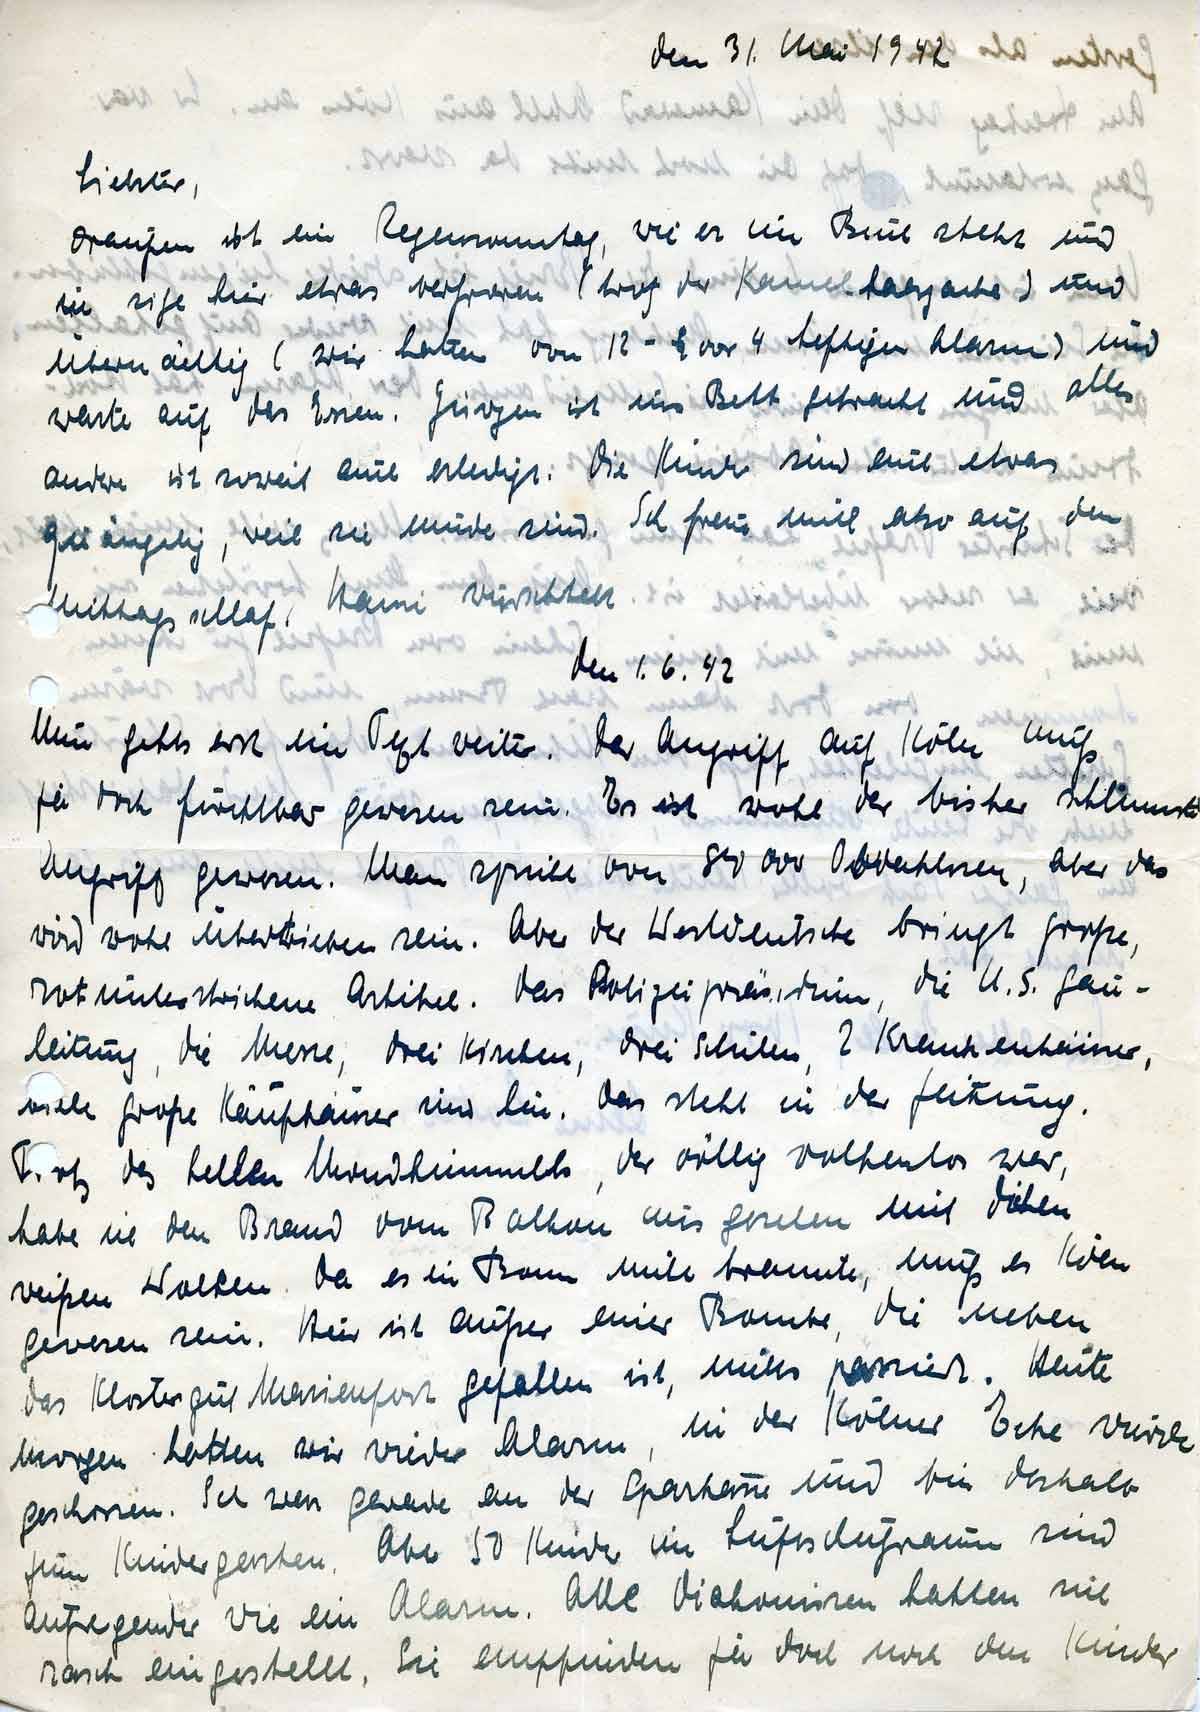 den 31. Mai 1942
Liebster,
draußen ist ein Regensonntag, wie er im Buch steht und
ich sitze hier etwas verfroren (trotz der Kamelhaarjacke) und
übernächtig (wir hatten von 12 - vor 4 heftigen Alarm) und
warte auf das Essen. Jürgen ist ins Bett gebracht und alles
andere ist soweit auch erledigt. Die Kinder sind auch etwas
quängelig, weil sie müde sind. Ich freue mich also auf den
Mittagsschlaf.
den 1.6.42
Nun gehts erst ein weiter. Der Angriff auf Köln muß
ja doch furchtbar gewesen sein. Es ist wohl der bisher schlimmste
Angriff gewesen. Man spricht von 000 Obdachlosen, aber das
wird wohl übertrieben sein. Aber der Westdeutsche bringt große,
rot unterstrichene Artikel. Das Polizeipräsidium, die N.S. Gau-
leitung, die Messe, drei Kirchen, drei Schulen, 2 Krankenhäuser,
viele große Kaufhäuser sind hin. Das steht in der Zeitung.
Trotz des hellen Mondhimmels, der völlig wolkenlos war,
habe ich den Brand vom Balkon aus gesehen mit dicken
weißen Wolken. Da es in Bonn nicht brannte, muß es Köln
gewesen sein. Hier ist außer einer Bombe, die neben
das Klostergut Marienforst gefallen ist, nichts passiert. Heute
morgen hatten wir wieder Alarm, in der Kölner Ecke wurde
geschossen. Ich war gerade an der Sparkasse und bin deshalb
zum Kindergarten. Aber 50 Kinder im Luftschutzraum sind
aufregender wie ein Alarm. Alle Diakonissen hatten sich
rasch eingestellt. Sie empfinden ja doch noch den Kinder